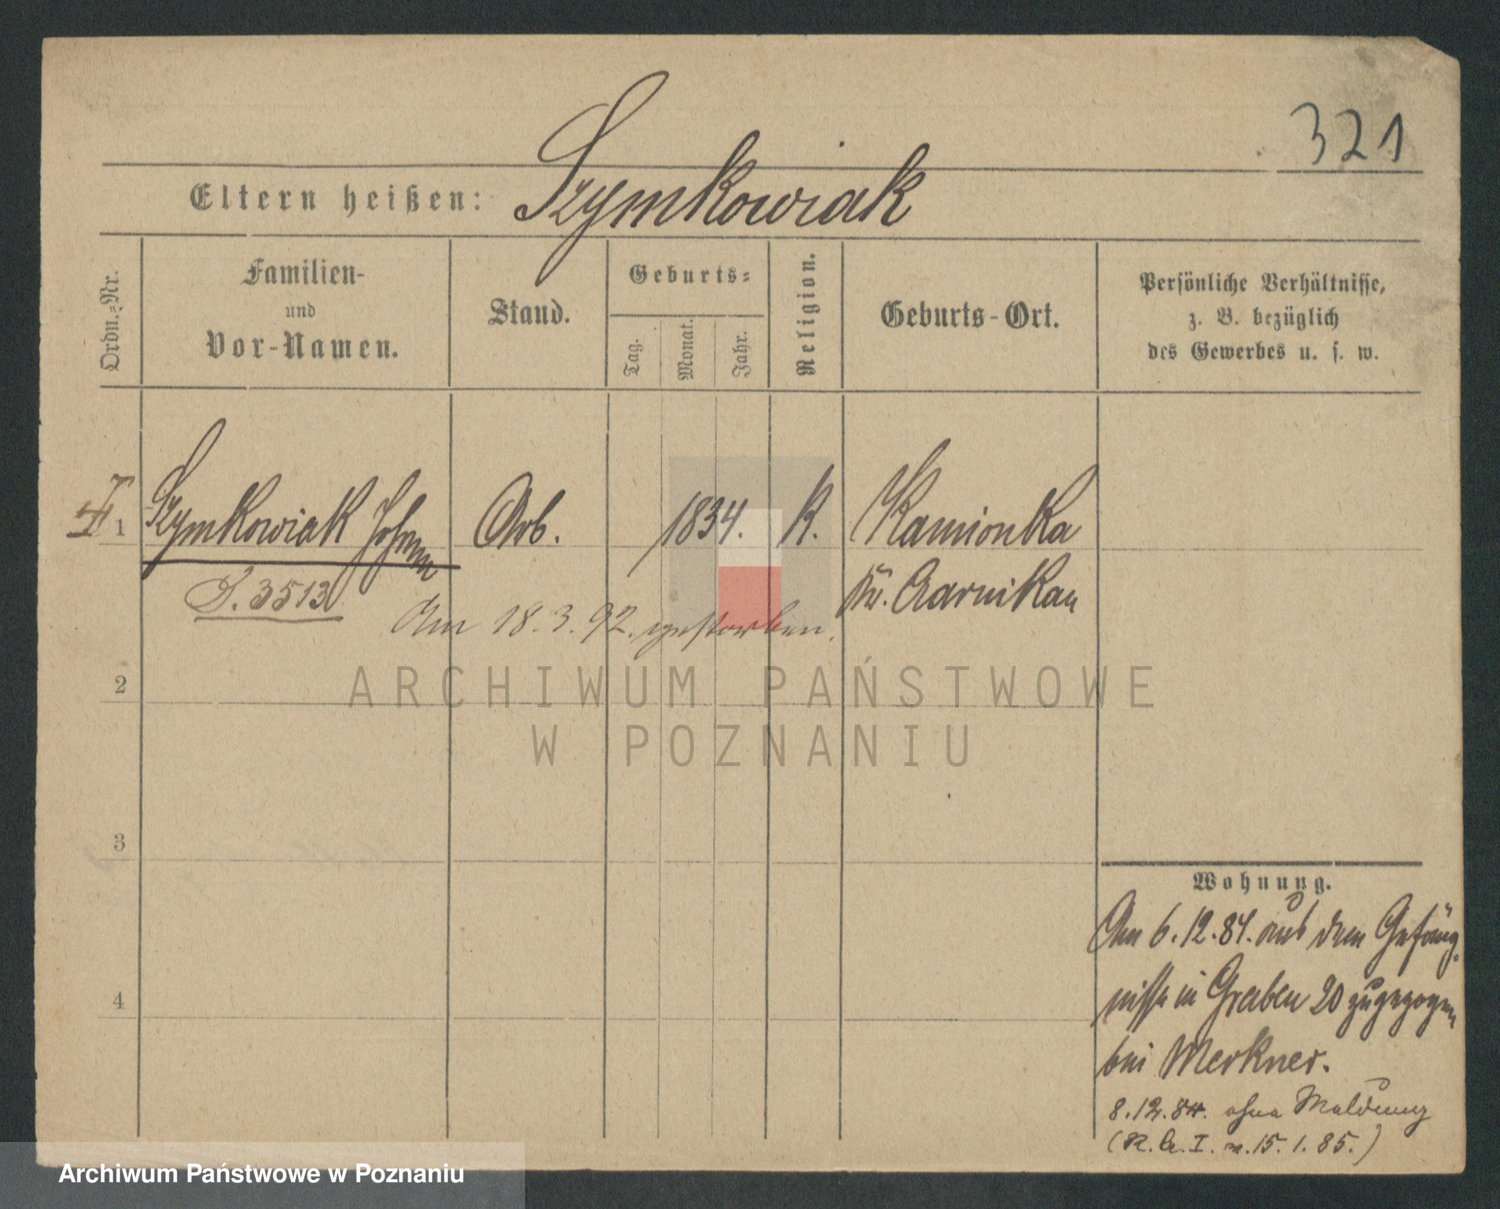 321
Eltern heißen: Szymkowiak
Ordn.-Nr.
Familien-
und
Vor-Namen.
Stand.
Geburts-
Tag.
Monat.
Jahr.
Religion.
Geburts-Ort.
Persönliche Verhältnisse,
z. B. bezüglich
des Gewerbes u. s. w.
1 Szymkowiak Johann Arb. 1834. K. Kamionka
J. 3513 Kr. Czarnikau
Am 18.3.92. gestorben.
2
ARCHIWUM PAŃSTWOWE
W POZNANIU
3
4
Wohnung.
Am 6.12.84. aus dem Gefäng-
nisse in Graben 20 zugezogen
bei Merkner.
8.12.84. ohne Meldung
15.1.85.)
Archiwum Państwowe w Poznaniu